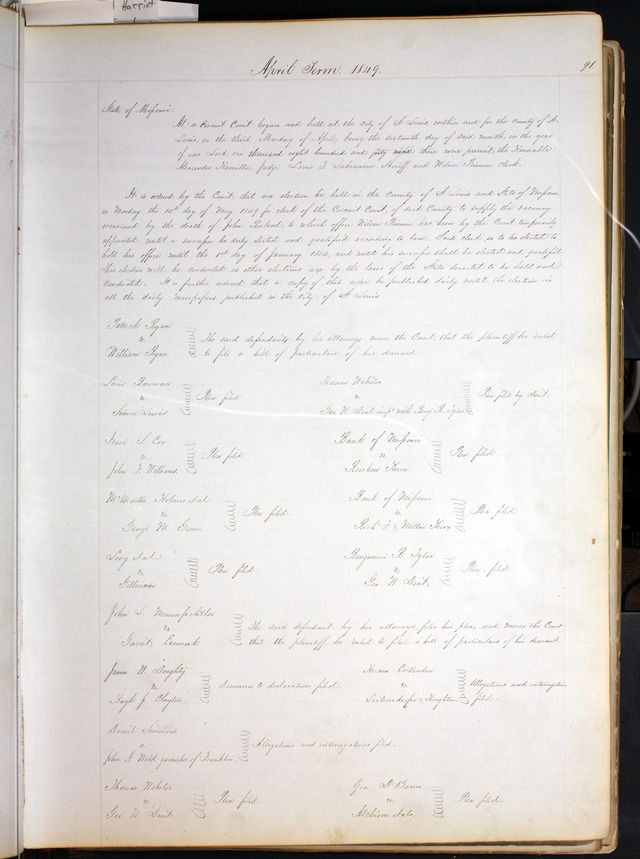 Harriet
April Term, 1849.
91
State of Missouri:
At a Circuit Court began and held at the city of St Louis within and for the county of St.
Louis, on the third Monday of April, being the sixteenth day of said month, in the year
of our Lord one thousand eight hundred and forty nine there were present, the Honorable
Alexander Hamilton Judge, Louis T. Labeaume Sheriff and Wilson Primm clerk.
It is ordered by the Court that an election be held in the County of St Louis and State of Missouri
on Monday the 14th day of May 1849 for clerk of the Circuit Court, of said County to supply the vacancy
occasioned by the death of John Ruland, to which office Wilson Primm has been by the Court temporarily
appointed until a successor be duly elected and qualified according to law. Said clerk is to be elected to
hold his office until the 1st day of January 1854, and until his successor shall be elected and qualified
This election will be conducted as other elections are by the laws of the State directed to be held and
conducted. It is further ordered that a copy of this order be published daily until the election in
all the daily newspapers, published in the city of St Louis
Patrick Ryan
vs.
William Ryan
The said defendant, by his attorney moves the Court, that the plaintiff be ruled
to file a bill of particulars of his demand.
Louis
vs
Simon Lewis
Plea filed
Thomas Webster
vs.
Geo W. Dent impd. with Benj R. Tyler
Plea filed by Dent.
S. Cox
vs
John F. Williams
Plea filed
Bank of Missouri
vs
Plea filed
Holmes & al
vs.
George M. Green
Plea filed.
Bank of Missouri
vs
Plea filed
Levy & al
vs.
Plea filed.
Benjamin R. Tyler
vs
Geo W. Dent.
Plea filed.
John S.
vs
The said defendant by his attorneys files his plea, and moves the Court
that the plaintiff be ruled to file a bill of particulars of his demand
James W. Doughty
vs.
Hugh J. Clayton
Demurrer to declaration filed.
Crittenden
vs.
Leitensdorfer & Houghton
Allegations and interrogatories
filed.
Daniel Simmons
vs.
John G. Weld garnishee of Franklin
Allegations and interrogatories filed.
Thomas Webster
vs
Geo W. Dent
Plea filed
Geo
vs
Plea filed.